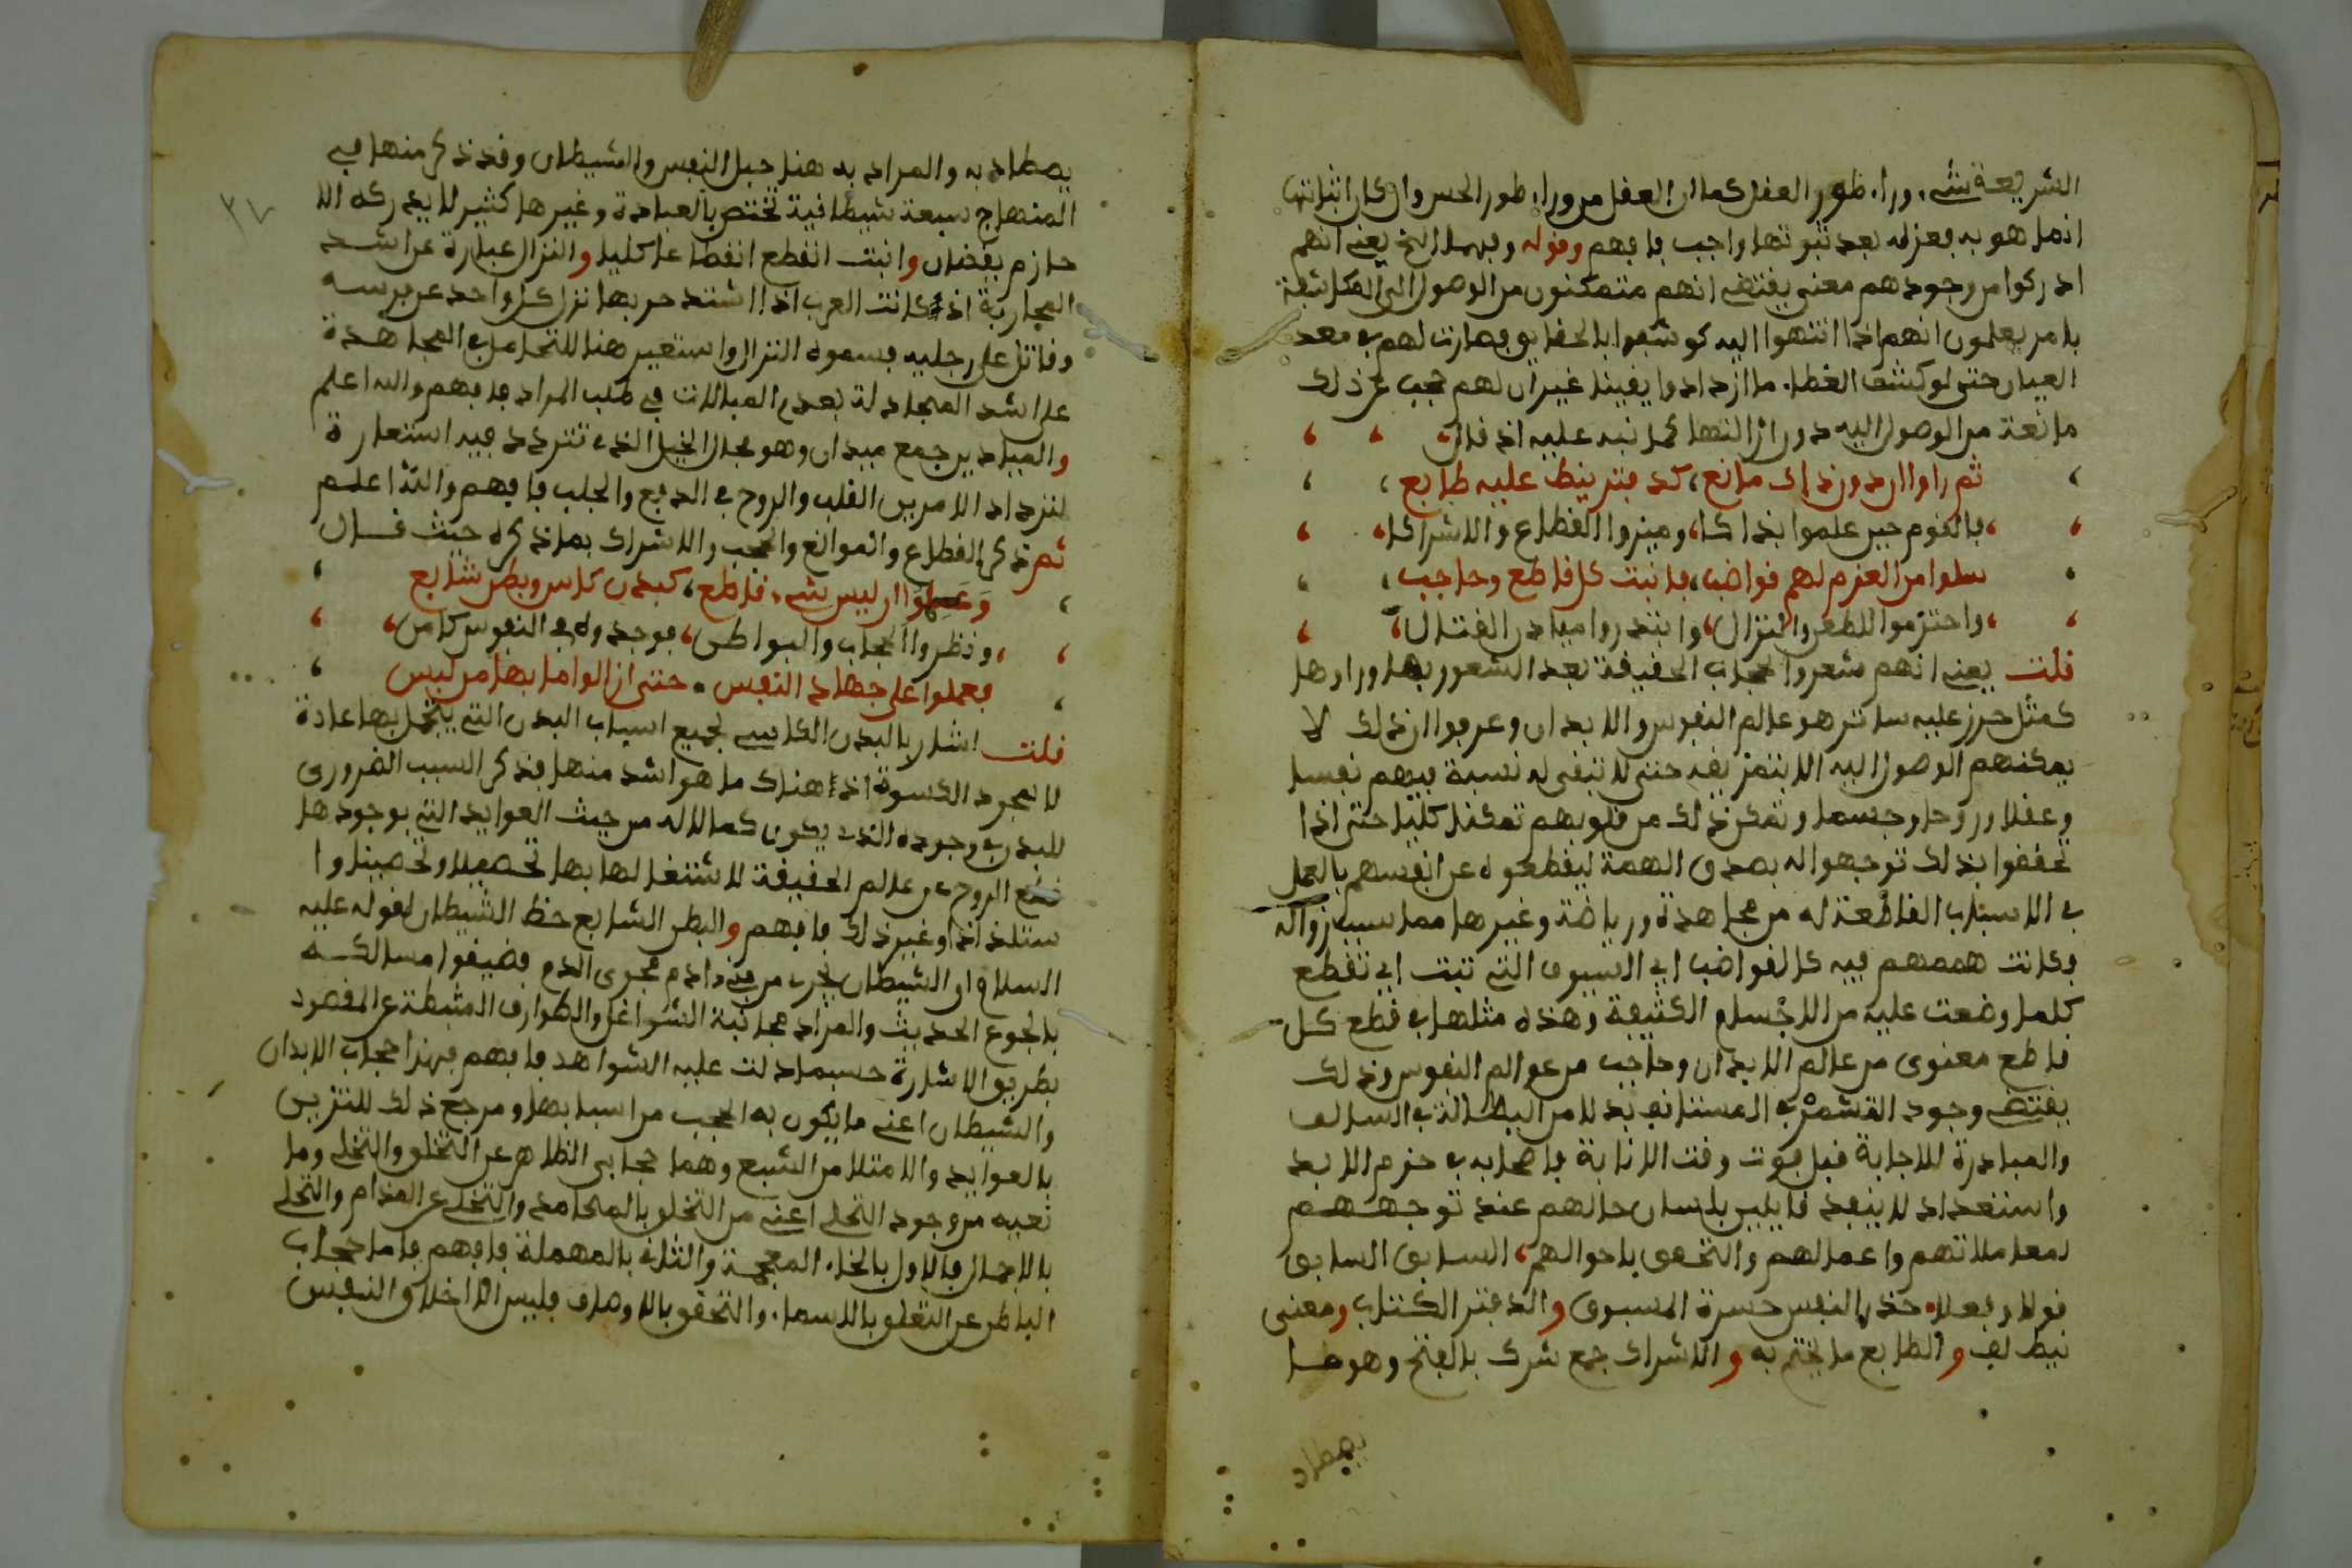 الشريعة شيء وراء طور العقل كما ان العقل من وراء طور الحس وان كان اثباتها
انما هو به فعزله بعد ثبوتها واجب فافهم وقوله وبهما الخ يعني انهم
ادركوا من وجودهم معنى يقتضي انهم متمكنون من الوصول الى المكاشفة
بامر يعلمون انهم اذا انتهوا اليه كوشفوا بالحقايق فصارت لهم في معد
العيان حتى لو كشف الغطاء ما ازدادوا يقينا غير ان لهم حجب عن ذلك
مانعة من الوصول اليه دون ازالتها كما نبه عليه اذ قال
ثم راوا ان دون ذاك مانع، كدفتر ينط عليه طابع
فالقوم حين علموا بذاكا، وميزوا القطاع والاشراكا
سلوا من العزم لهم قواضبا، فانبت كل قاطع وحاجب
واحتزموا للطعن والنزال، وابتدروا ميادن القتال
قلت يعني انهم شعروا بحجاب الحقيقة بعد الشعور بها وراوها
كمثل حرز عليه ساتر هو عالم النفوس والابدان وعرفوا ان ذلك لا
يمكنهم الوصول اليه الا بتمزيقه حتى لا تبقى له نسبة فيهم نفسا
وعقلا وروحا وجسما وتمكن ذلك من قلوبهم تمكنا كليا حتى اذا
تحققوا بذلك توجهوا له بصدق الهمة ليقطعوه عن انفسهم بالعمل
في الاسباب القاطعة له من مجاهدة ورياضة وغيرها مما سبب زواله
وكانت هممهم فيه كالقواضب اي السيوف التي تبت اي تقطع
كلما وضعت عليه من الاجسام الكثيفة وهذه مثلها في قطع كل
قاطع معنوي من عالم الابدان وحاجب من عوالم النفوس وذلك
يقتضي وجود التشمر في المستانف بدلا من البطالة في السالف
والمبادرة للاجابة قبل فوت وقت الانابة فاصحابه في حزم لا يعد
واستعداد لا ينفد قايلين بلسان حالهم عند توجههم
لمعاملاتهم واعمالهم والتحقق باحوالهم، السابق السابق
قولا وفعلا، حذر النفس حسرة المسبوق والدفتر الكتاب ومعنى
نيط لف والطابع ما يختم به والاشراك جمع شرك بالفتح وهو ما
يصطاد
يصطاد به والمراد به هنا حبل النفس والشيطان وقد ذكر منها في
المنهاج سبعة شيطانية تختص بالعبادة وغيرها كثير لا يدركه الا
حازم يقظان وانبت انقطع انقطاعا كليا والنزال عبارة عن اشد
المحاربة اذ كانت العرب اذا اشتد حربها نزل كل واحد عن فرسه
وقاتل على رجليه فسموه النزال واستعير هنا للتحامل في المجاهدة
على اشد المجادلة بعدم المبالات في طلب المراد فافهم والله اعلم
والميادين جمع ميدان وهو مجال الخيل الذي تتردد فيه استعارة
لترداد الامر بين القلب والروح في الدفع والجلب فافهم والله اعلم
ثم ذكر القطاع والموانع والحجب والاشراك بما ذكره حيث قال
وعلموا ان ليس شيء قاطع، كبدن كاس وبطن شابع
ونظروا الحجاب والبواطن، فوجدوه في النفوس كامن
فعملوا على جهاد النفس، حتى ازالوا ما بها من لبس
قلت اشار بالبدن الكاسي لجميع اسباب البدن التي يتجمل بها عادة
لا لمجرد الكسوة اذ هناك ما هو اشد منها فذكر السبب الضروري
للبدن في وجوده الذي يكون كمالا له من حيث العوايد التي بوجودها
قطع الروح عن عالم الحقيقة لاشتغالها بها تحصيلا وتحصينا وا
ستلذاذا وغير ذلك فافهم والبطن الشابع حظ الشيطان لقوله عليه
السلام ان الشيطان يجري من ابن ادم مجرى الدم فضيقوا مسالكه
بالجوع الحديث والمراد مجانبة الشواغل والطوارق المثبطة عن المقصود
بطريق الاشارة حسبما دلت عليه الشواهد فافهم فهذا حجاب الابدان
والشيطان اعني ما يكون به الحجب من اسبابها ومرجع ذلك للتزين
بالعوايد والامتلا من الشبع وهما حجابي الظاهر عن التخلق والتحلي وما
نعيه من وجود التحلي اعني من التخلق بالمحامد والتخلي عن المذام والتحلي
بالاجمال فالاول بالخاء المعجمة والثاني بالمهملة فافهم فاما حجاب
الباطن عن التعلق بالاسماء والتحقق بالاوصاف فليس الا اخلاق النفس
٣٧